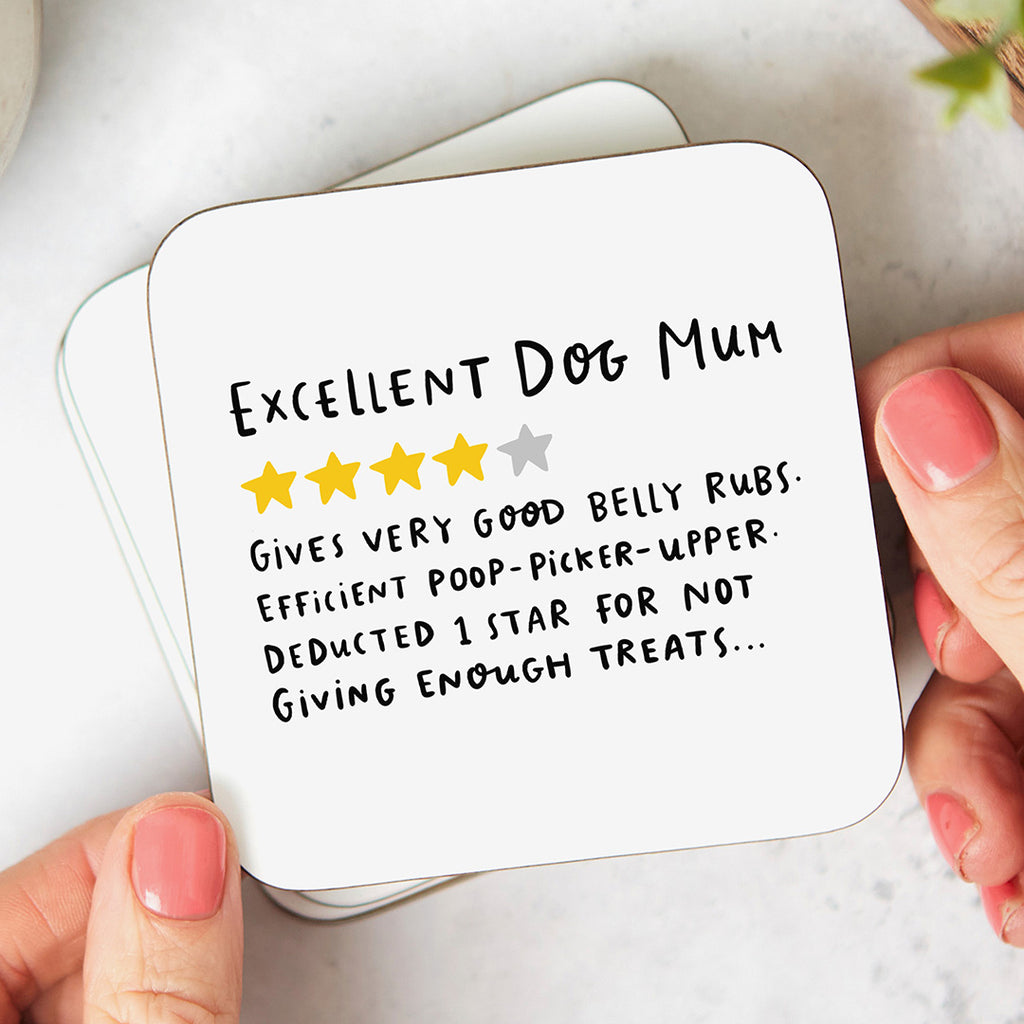 Excellent Dog Mum
Gives very good belly rubs.
Efficient poop-picker-upper.
Deducted 1 star for not
giving enough treats...